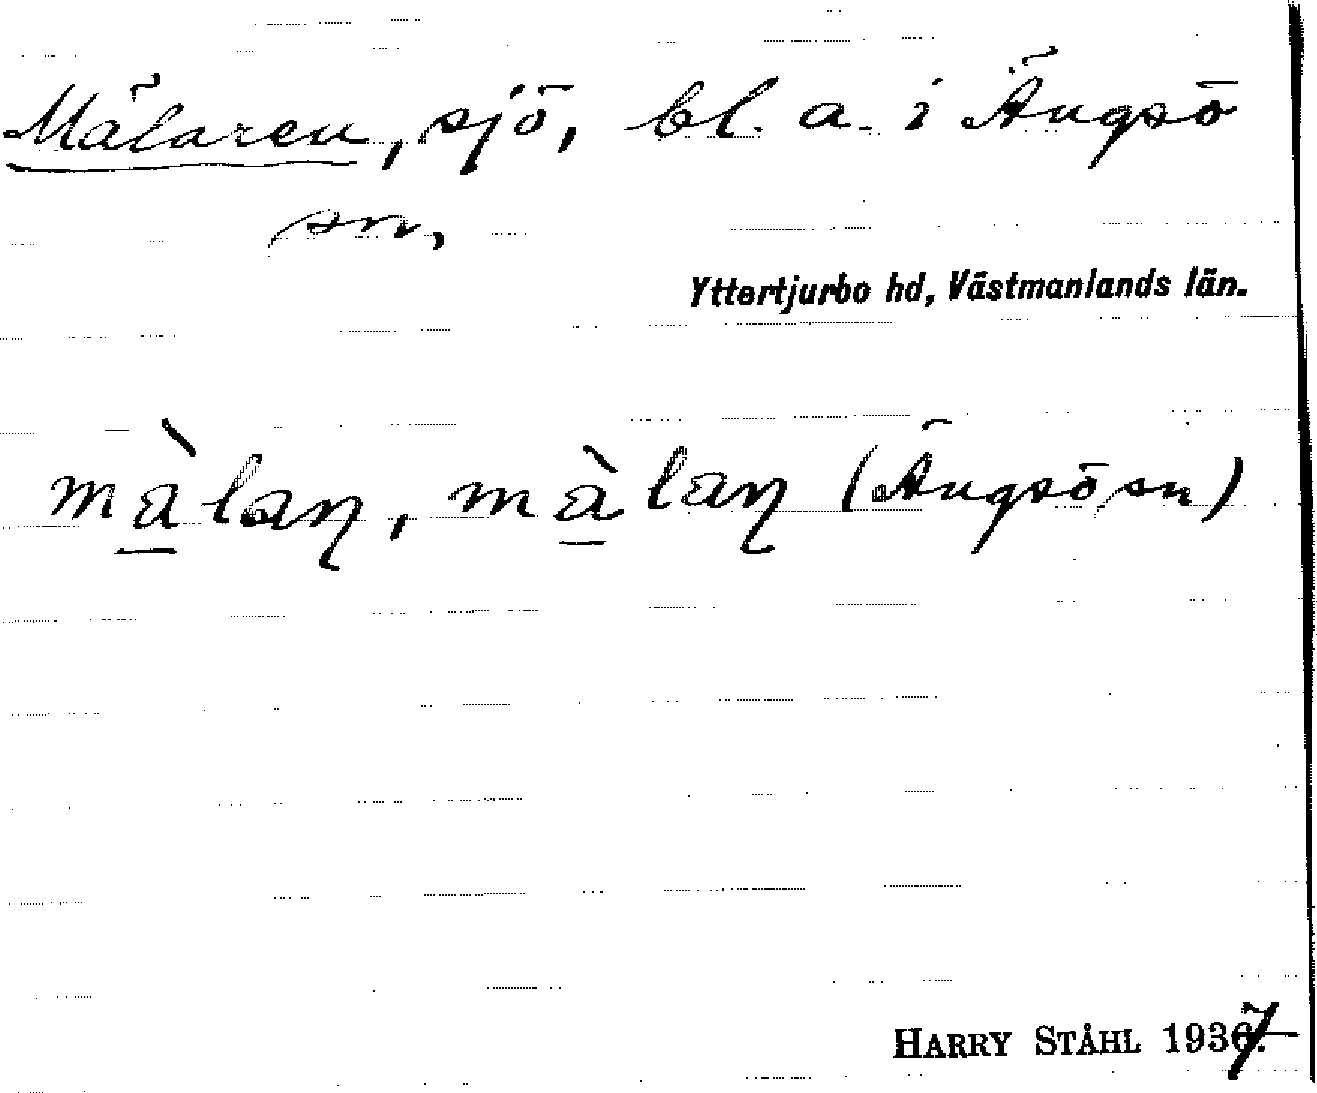 Mälaren, sjö, bl. a. i Ängsö
sn,
Yttertjurbo hd, Västmanlands län.
màlaŋ, màlaŋ (Ängsö sn)
HARRY STÅHL 1937